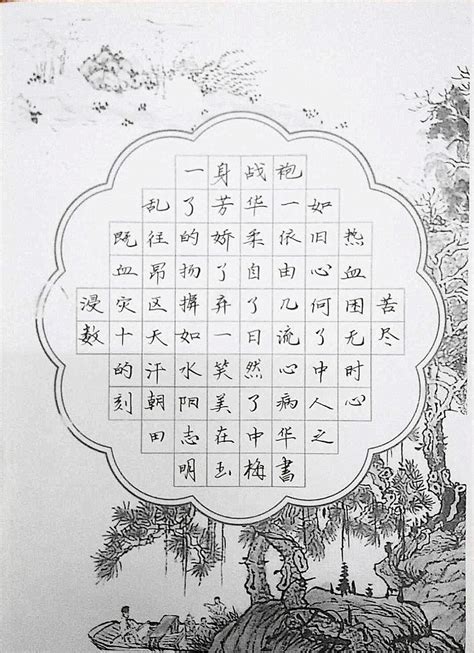 一身战袍
乱了芳华一如
既往的娇柔依旧热
血昂扬了自由心血
浸灾区摒弃了几何困苦
数十天如一日流了无尽
的汗水笑然心中时
刻朝阳美了病人心
田志在中华之
明玉梅書